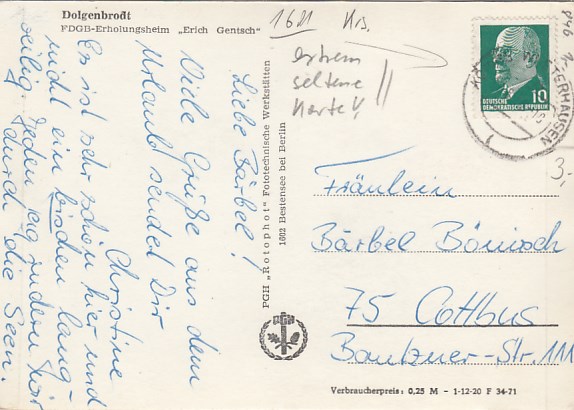 Dolgenbrodt
FDGB-Erholungsheim „Erich Gentsch"
1601 Krs.
extrem
seltene
Karte!!
846
3,-
DEUTSCHE
DEMOKRATISCHE REPUBLIK
10
TERHAUSEN
1
Liebe Bärbel!
Viele Grüße aus dem
Urlaub sendet Dir
Christine
Es ist sehr schön hier und
nicht ein bischen lang-
weilig. Jeden Tag rudern wir
durch die Seen.
PGH „Rotophot" Fototechnische Werkstätten
1602 Bestensee bei Berlin
Fräulein
Bärbel Bönisch
75 Cottbus
Bautzner-Str. 111
Verbraucherpreis: 0,25 M - 1-12-20 F 34-71